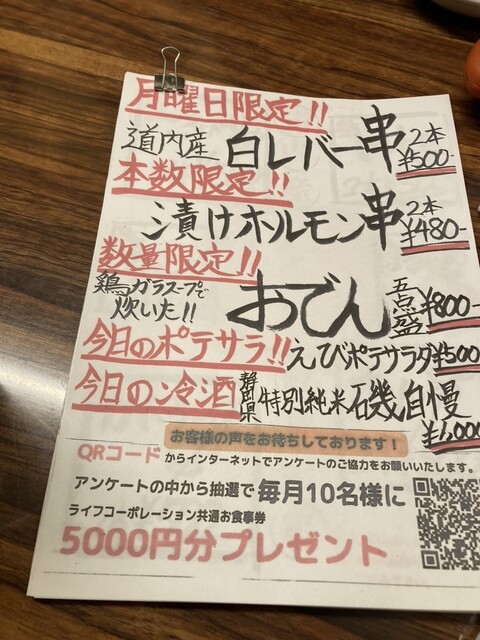 月曜日限定!!
道内産 白レバー串 2本 ¥500-
本数限定!!
漬けホルモン串 2本 ¥480-
数量限定!!
鶏ガラスープで炊いた!! おでん 五点盛 ¥800-
今日のポテサラ!! えびポテサラダ ¥500
今日の冷酒 静岡県 特別純米 磯自慢 ¥1,000
お客様の声をお待ちしております!
QRコードからインターネットでアンケートのご協力をお願いいたします。
アンケートの中から抽選で毎月10名様に
ライフコーポレーション共通お食事券
5000円分プレゼント